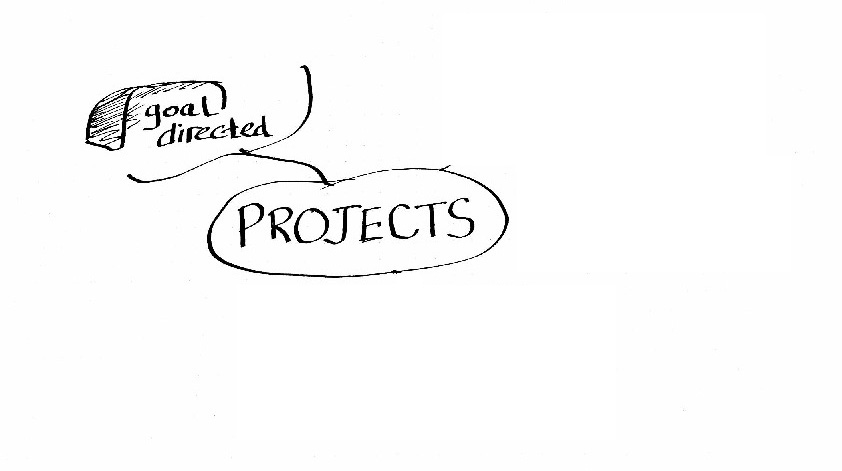 goal
directed
PROJECTS